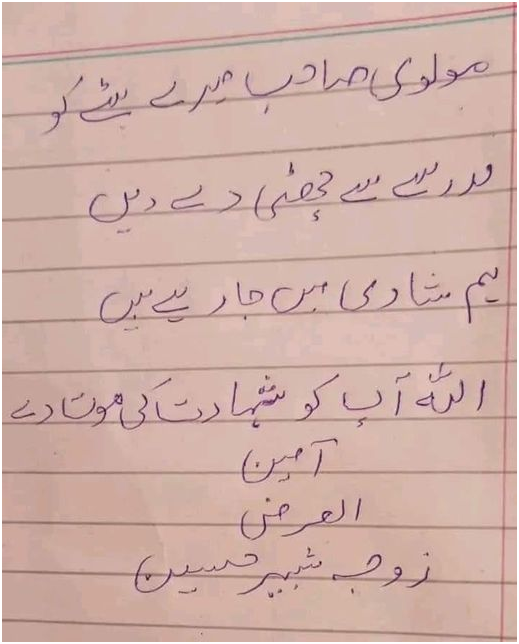 مولوی صاحب میرے بیٹے کو
مدرسے سے چھٹی دے دیں
ہم شادی میں جا رہے ہیں
اللہ آپ کو شہادت کی موت دے
آمین
العرض
زوجہ شبیر حسین